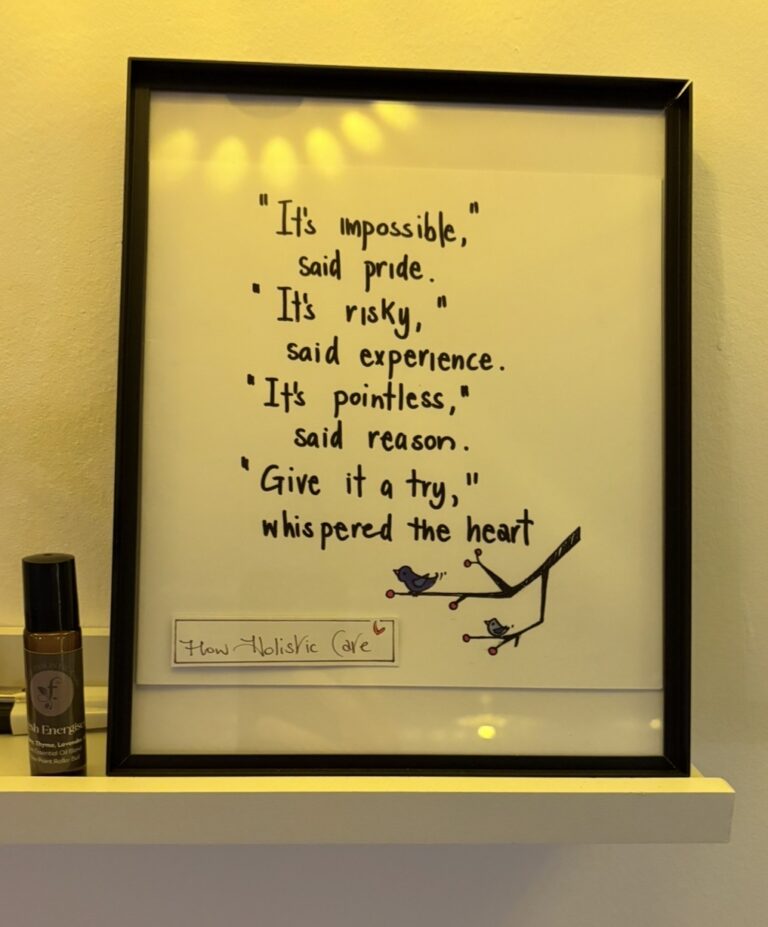 "It's impossible,"
said pride.
"It's risky,"
said experience.
"It's pointless,"
said reason.
"Give it a try,"
whispered the heart
Flow Holistic Care
Thyme, Lavender
Essential Oil Blend
Point Roller Ball